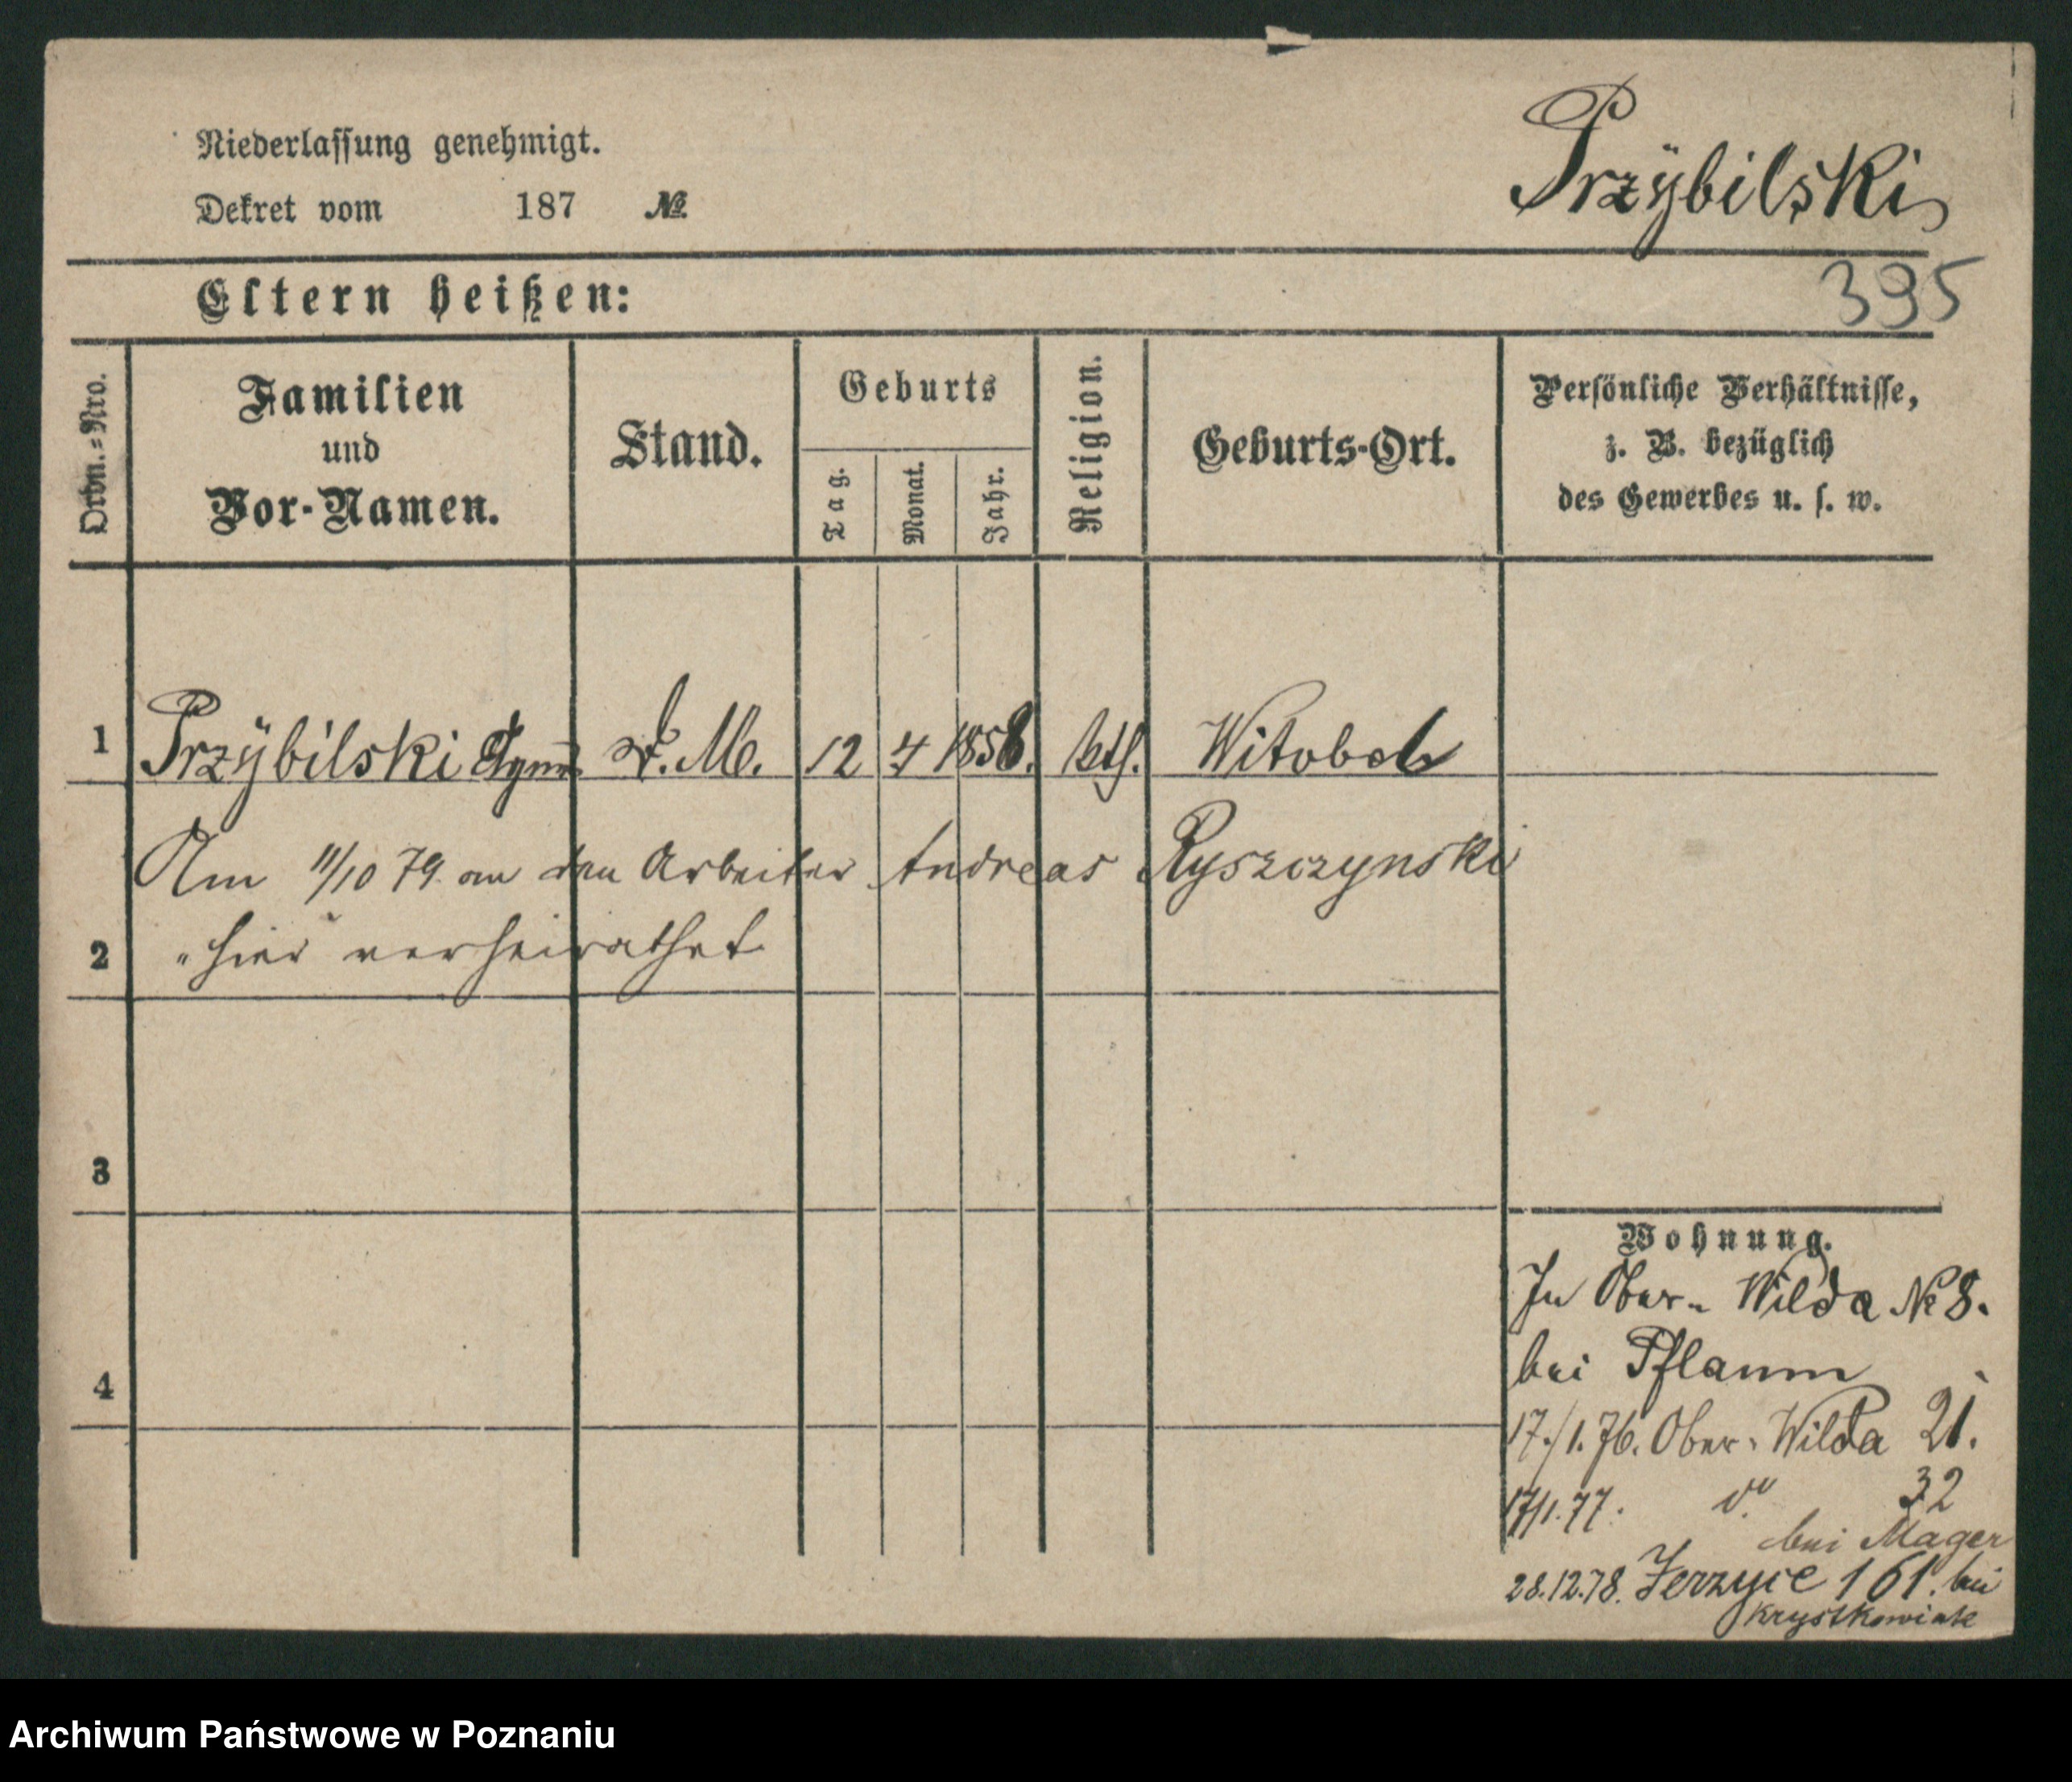 Niederlassung genehmigt.
Dekret vom 187 №
Przÿbilski
395
Eltern heißen:
Ordn.=Nro.
Familien
und
Vor-Namen.
Stand.
Geburts
Tag.
Monat.
Jahr.
Religion.
Geburts-Ort.
Persönliche Verhältnisse,
z. B. bezüglich
des Gewerbes u. s. w.
1 Przÿbilski D. M. 12 4 1858. kth. Witobel
Am 11/10 79 an den Arbeiter Andreas Ryszczynski
2 "hier" verheirathet
3
4
Wohnung.
In Ober-Wilda № 8.
bei Pflaum
17./1.76. Ober-Wilda 21.
17/1.77. do 32
bei Mager
28.12.78. Jerzyce 161. bei
Krystkowiak
Archiwum Państwowe w Poznaniu